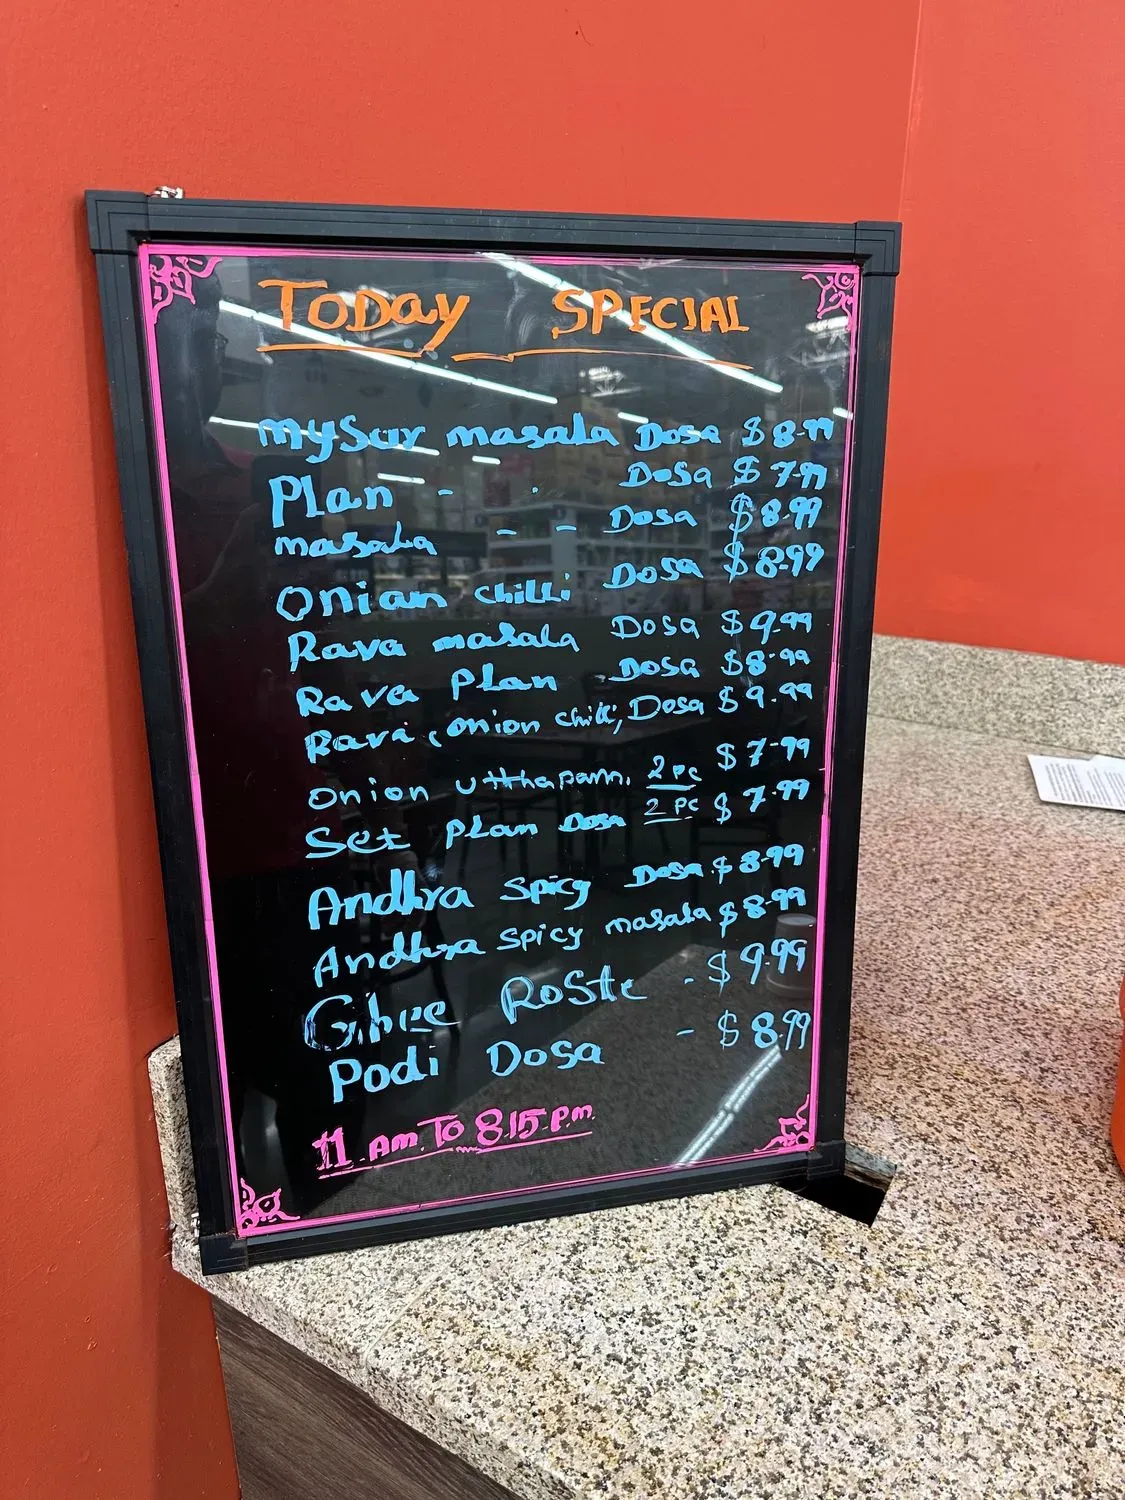 TODay SPECIAL
mysur masala Dosa $ 8.99
Plan - - Dosa $ 7.99
masala - - Dosa $ 8.99
Onian chilli Dosa $ 8.99
Rava masala Dosa $ 9.99
Rava Plan Dosa $ 8.99
Rava, onion chilli, Dosa $ 9.99
onion utthapam. 2 pc $ 7.99
Set Plan Dosa 2 PC $ 7.99
Andhra Spicy Dosa $ 8.99
Andhra Spicy masala $ 8.99
Ghee Roste - $ 9.99
Podi Dosa - $ 8.99
11 Am To 8.15 P.m